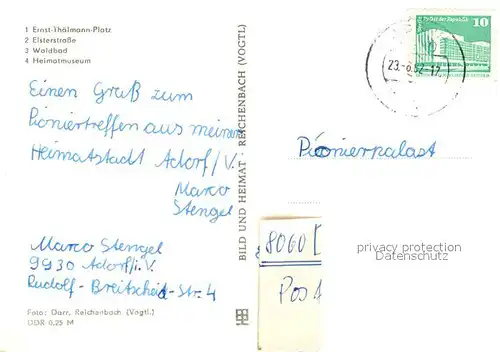 1 Ernst-Thälmann-Platz
2 Elsterstraße
3 Waldbad
4 Heimatmuseum
Einen Gruß zum
Pioniertreffen aus meiner
Heimatstadt Adorf/V.
Marco
Stengel
Marco Stengel
9930 Adorf/i.V.
Rudolf-Breitscheid-Str. 4
Foto: Darr, Reichenbach (Vogtl.)
DDR 0,25 M
BILD UND HEIMAT · REICHENBACH (VOGTL)
10
Palast der Republik
23.-8.82-17
Pionierpalast
8060
Post
privacy protection
Datenschutz